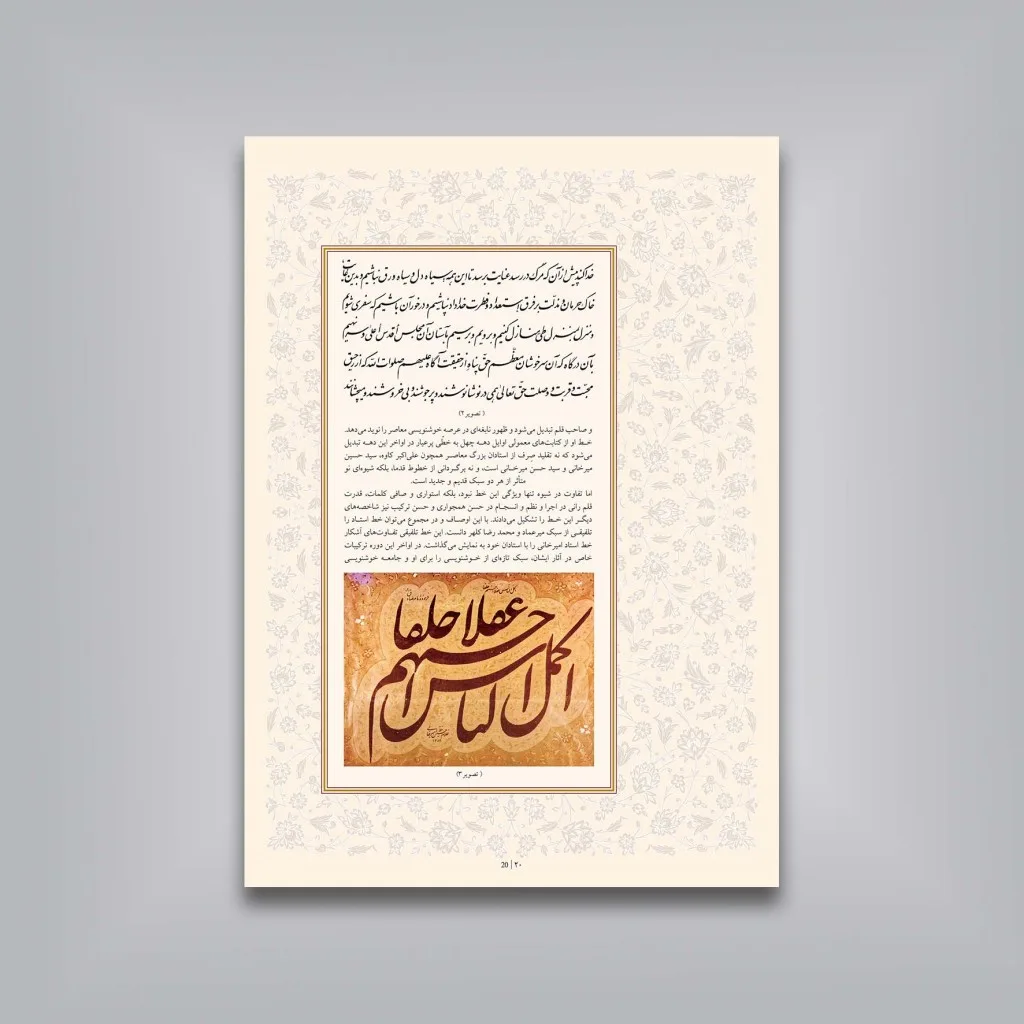 خدا کند پیش از آن که مرگ در رسد عنایت برسد تا این همه سیاه دل و سیاه ورق نباشیم و بدین
خاک حرمان و مذلّت بر فرق استعداد و فطرت خداداد نپاشیم و در خور آن باشیم که سفری شویم
و منزل بمنزل طی منازل کنیم و برویم و برسیم تا بستان آن مجلس أقدس اعلی و
بآن درگاه که آن سرخوشان معظّم حقّ پناه از حقیقت آگاه علیهم صلوات الله که از رحیق
محبّت و قربت و وصلت حقّ تعالی همی در نوشانوشند و پر جوشند و بی خروشند و میچشانند
( تصویر ۲)
و صاحب قلم تبدیل می‌شود و ظهور نابغه‌ای در عرصه خوشنویسی معاصر را نوید می‌دهد.
خـط او از کتابت‌های معمولی اوایل دهـه چهل به خطّی پرعیار در اواخر این دهـه تبدیل
می‌شود که نه تقلید صِرف از استادان بزرگ معاصـر همچون علی‌اکبر کاوه، سید حسین
میرخانی و سید حسن میرخـانی است، و نه برگـردانی از خطوط قدما، بلکه شیوه‌ای نو
متأثر از هر دو سبک قدیم و جدید است.
اما تفاوت در شیوه تنها ویژگی این خط نبود، بلکه استواری و صافی کلمات، قدرت
قلم رانی در اجرا و نظم و انسجـام در حسن همجواری و حسن ترکیب نیز شاخصه‌های
دیگـر این خـط را تشکیل می‌دادند. با این اوصـاف و در مجموع می‌توان خط استـاد را
تلفیقـی از سبک میرعماد و محمد رضا کلهر دانست. این خط تلفیقی تفـاوت‌های آشکار
خط استاد امیرخانی را با استادان خود به نمایش می‌گذاشت. در اواخر این دوره ترکیبات
خاص در آثار ایشان، سبک تازه‌ای از خـوشنویسی را برای او و جامعـه خوشنویسی
اکمل الناس عقلا احسنهم خلقا
( تصویر ۳)
20 | ۲۰